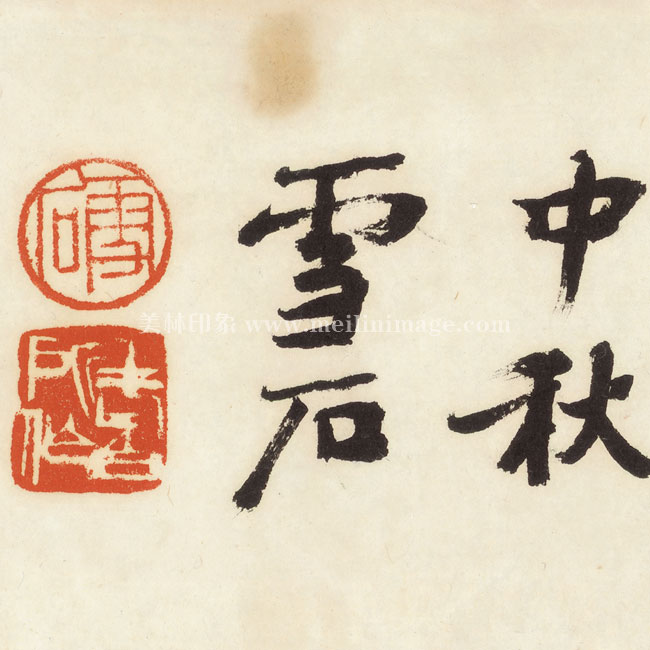 中秋
雪石
美林印象 www.meilinimage.com